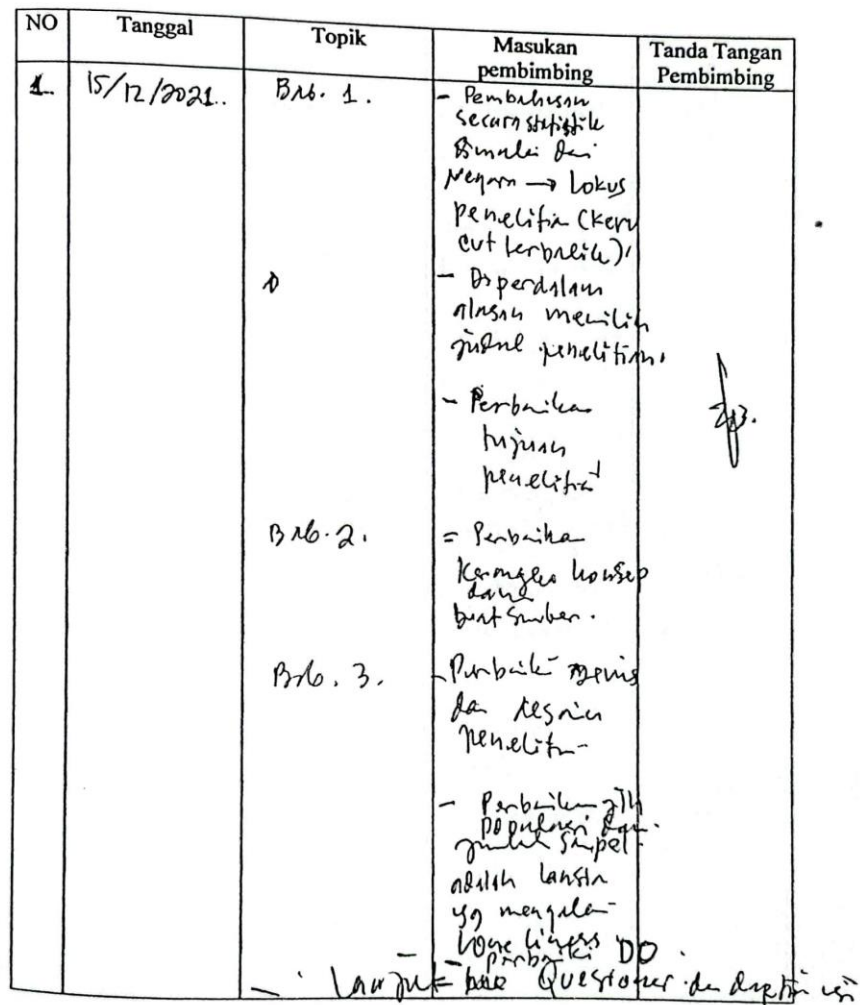 NO Tanggal Topik Masukan pembimbing Tanda Tangan Pembimbing
1. 15/12/2021.. Bab. 1. - Pembahasan
secara statistik
Dimulai dari
Negara → Lokus
penelitian (keru
cut terbalik).
- Diperdalam
alasan memilih
judul penelitian.
- Perbaikan
tujuan
penelitian
Bab. 2. = Perbaikan
Kerangka konsep
dan
buat sumber.
Bab. 3. - Perbaiki Jenis
dan desain
penelitian
- Perbaikan
populasi dan
jumlah sampel
adalah lansia
yg mengalami
DO
perbaiki
- Lanjut Quesioner dan